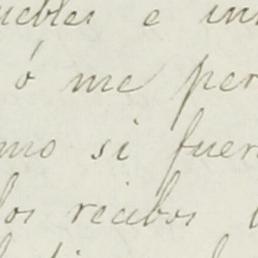 uebles e in
ó me per
mo si fuer
los recibos